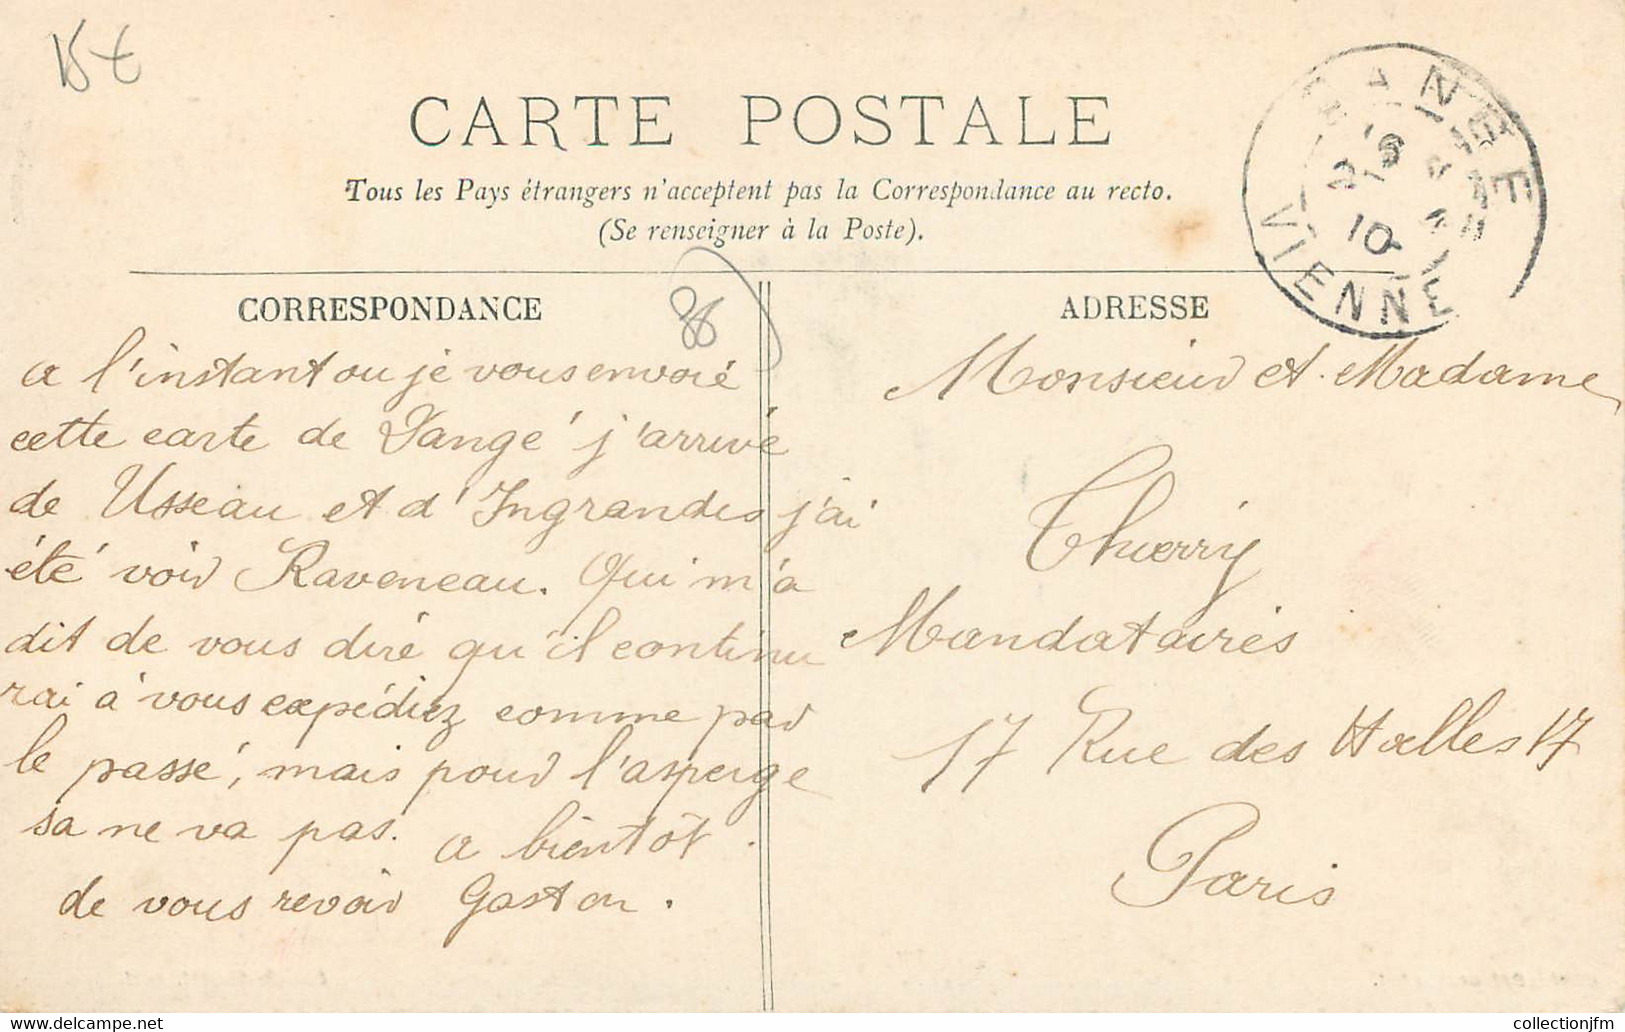 15 €
CARTE POSTALE
Tous les Pays étrangers n'acceptent pas la Correspondance au recto.
(Se renseigner à la Poste).
VIENNE
10
CORRESPONDANCE
86
a l'instant ou je vous envoié
cette carte de Dangé j'arrivé
de Usseau et d'Ingrandes j'ai
été voir Raveneau. Qui m'a
dit de vous diré qu'il continu
rai à vous expédiez comme par
le passé, mais pour l'asperge
sa ne va pas. a bientôt
de vous revoir Gaston.
ADRESSE
Monsieur et Madame
Thierry
Mandatairés
17 Rue des Halles 17
Paris
collectionjfm